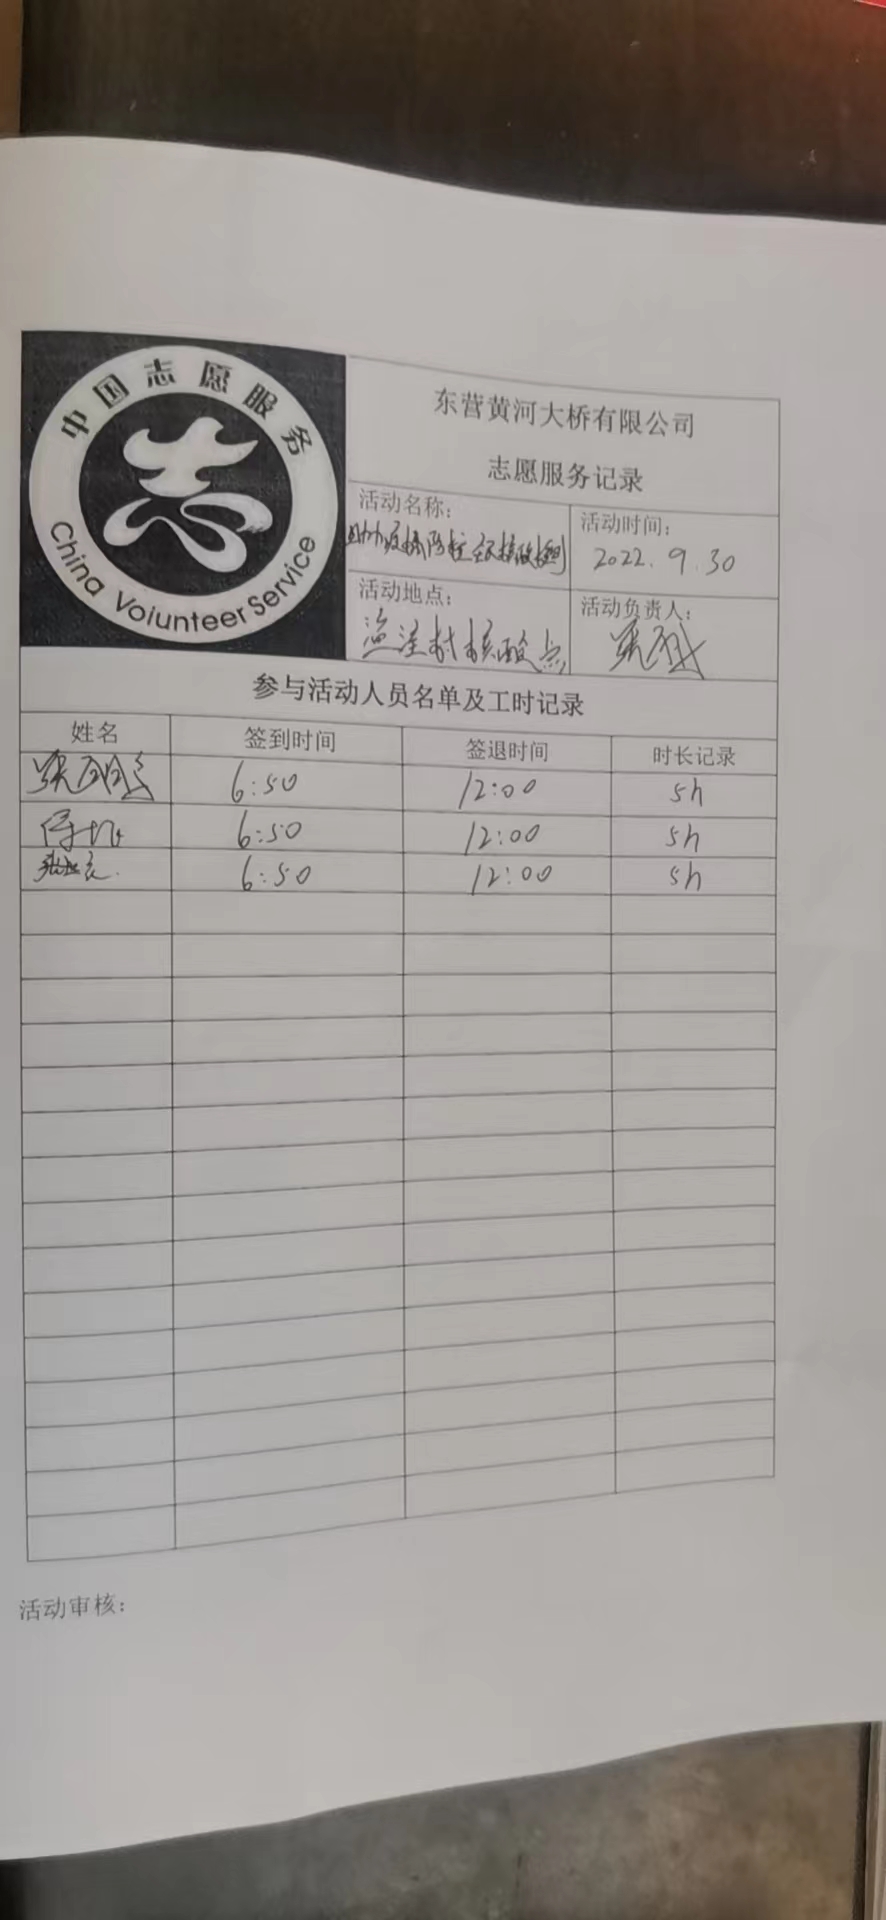 中国志愿服务
志
China Voiunteer Service
东营黄河大桥有限公司
志愿服务记录
活动名称：
助力疫情防控 核酸检测
活动时间：
2022.9.30
活动地点：
村核酸点
活动负责人：
参与活动人员名单及工时记录
姓名 签到时间 签退时间 时长记录
6:50 12:00 5h
6:50 12:00 5h
6:50 12:00 5h
活动审核：